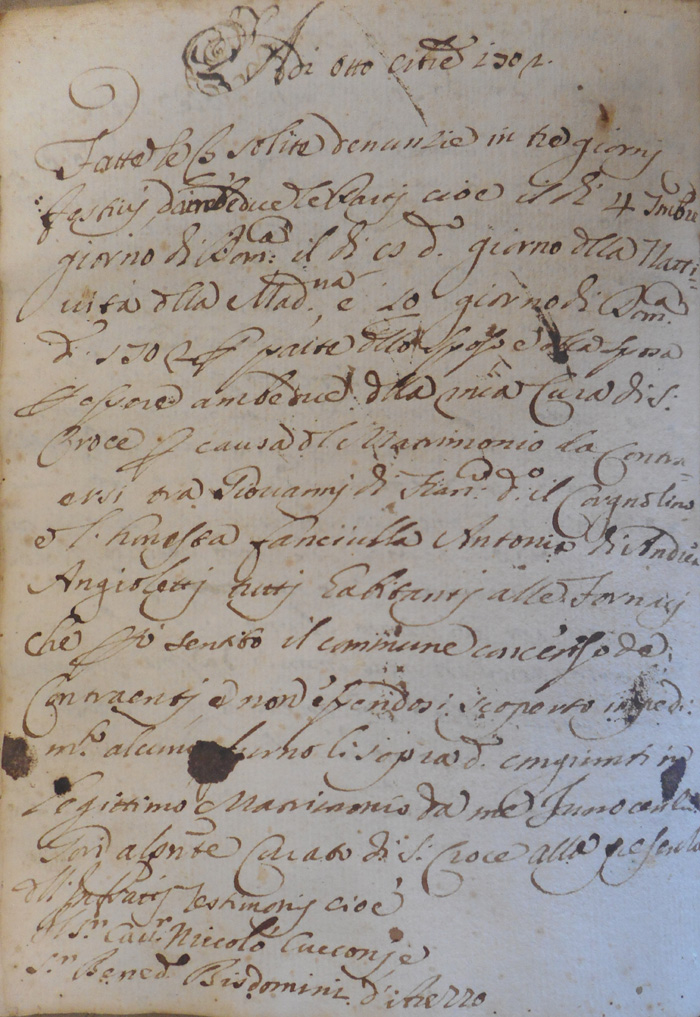 Adi otto 1702.
Fatte le solite denunzie in tre giorni
festivi d'ambedue le Parti cioè il di 4
giorno di Dom.ca il di 8 d. giorno della Nati=
vità della Mad.na e 10 giorno di Dom.ca
d. 1702 p parte dello sposo e della sposa
p essere ambedue della mia Cura di S.
Croce p causa del Matrimonio da Contra-
ersi tra Giovannj di Fran.co d.o il
e l' honesta fanciulla Antonia di Andrea
Angiolettj tuttj habitantj alle Fornacj
che sentito il commune consenso de
Contraentj e non essendosi scoperto imped:
m.to alcuno furno li sopra d. congiunti in
legittimo Matrimonio da me Innocentio
Curato di S. Croce alla presenza
dell' Infrattj Testimonij cioè
Il S.r Cav.r Niccolò
S.r Bened. Bisdomini d'Arezzo